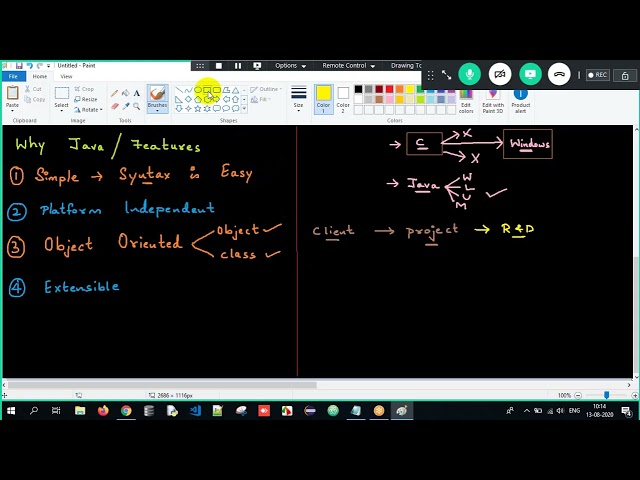 Untitled - Paint
Options
Remote Control
Drawing To
REC
File
Home
View
Paste
Clipboard
Select
Crop
Resize
Rotate
Image
Tools
Brushes
Shapes
Outline
Fill
Size
Color 1
Color 2
Colors
Edit colors
Edit with Paint 3D
Product alert
Why Java / Features
① Simple → Syntax is Easy
② Platform Independent
③ Object Oriented
Object ✓
class ✓
④ Extensible
→ C
X
X
Windows
→ Java
W
L
U
M
✓
Client → project → R&D
2686 × 1116px
100%
ENG
10:14
13-08-2020